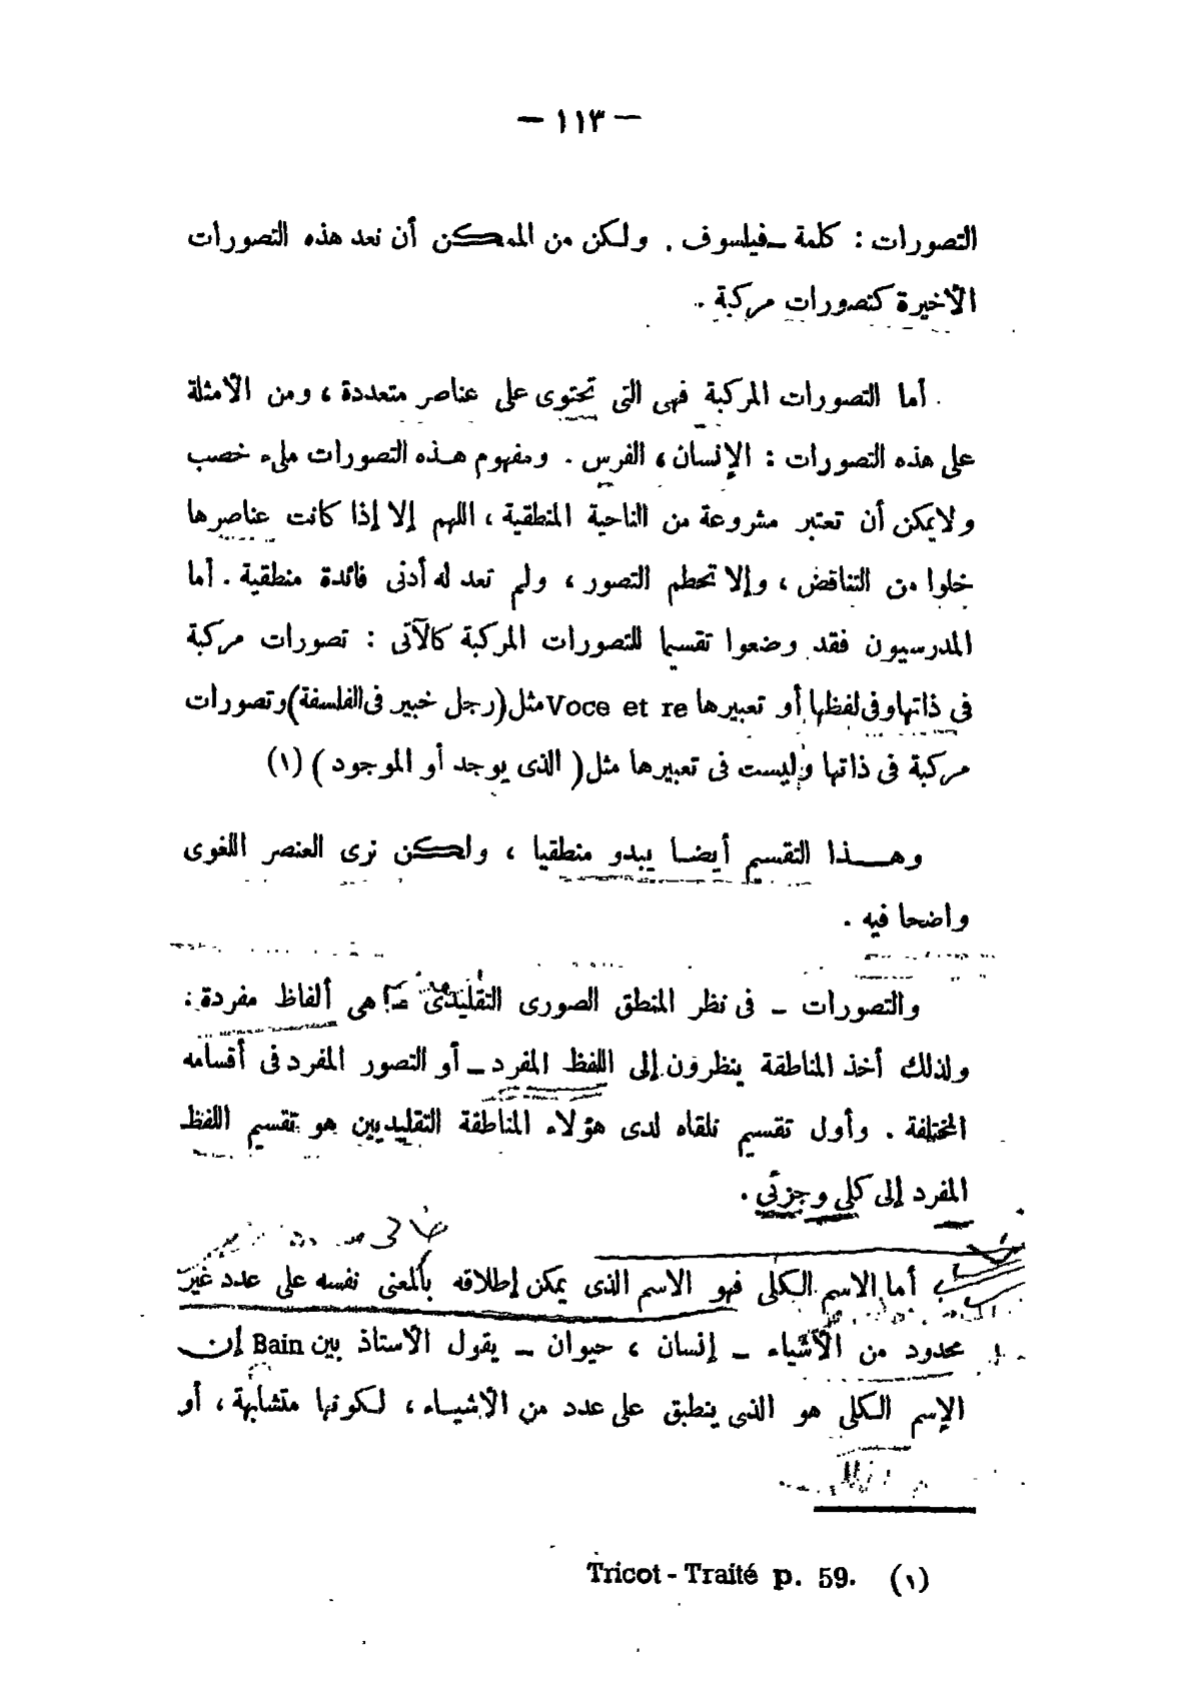 — ١١٣ —
التصورات : كلمة - فيلسوف . ولكن من الممكن أن نعد هذه التصورات
الأخيرة كتصورات مركبة .
أما التصورات المركبة فهى التى تحتوى على عناصر متعددة ، ومن الأمثلة
على هذه التصورات : الإنسان ، الفرس . ومفهوم هذه التصورات ملىء خصب
ولايمكن أن تعتبر مشروعة من الناحية المنطقية ، اللهم إلا إذا كانت عناصرها
خلوا من التناقض ، وإلا تحطم التصور ، ولم تعد له أدنى فائدة منطقية . أما
المدرسيون فقد وضعوا تقسيما للتصورات المركبة كالآتى : تصورات مركبة
فى ذاتها وفى لفظها أو تعبيرها Voce et re مثل (رجل خبير فى الفلسفة) وتصورات
مركبة فى ذاتها وليست فى تعبيرها مثل ( الذى يوجد أو الموجود ) (١)
وهــذا التقسيم أيضا يبدو منطقيا ، ولكن نرى العنصر اللغوى
واضحا فيه .
والتصورات - فى نظر المنطق الصورى التقليدى هى ألفاظ مفردة :
ولذلك أخذ المناطقة ينظرون إلى اللفظ المفرد - أو التصور المفرد فى أقسامه
المختلفة . وأول تقسيم نلقاه لدى هؤلاء المناطقة التقليديين هو تقسيم اللفظ
المفرد إلى كلى وجزئى .
أما الاسم الكلى فهو الاسم الذى يمكن إطلاقه بالمعنى نفسه على عدد غير
محدود من الأشياء - إنسان ، حيوان - يقول الأستاذ بين Bain إن
الإسم الكلى هو الذى ينطبق على عدد من الأشياء ، لكونها متشابهة ، أو
(١) Tricot - Traité p. 59.